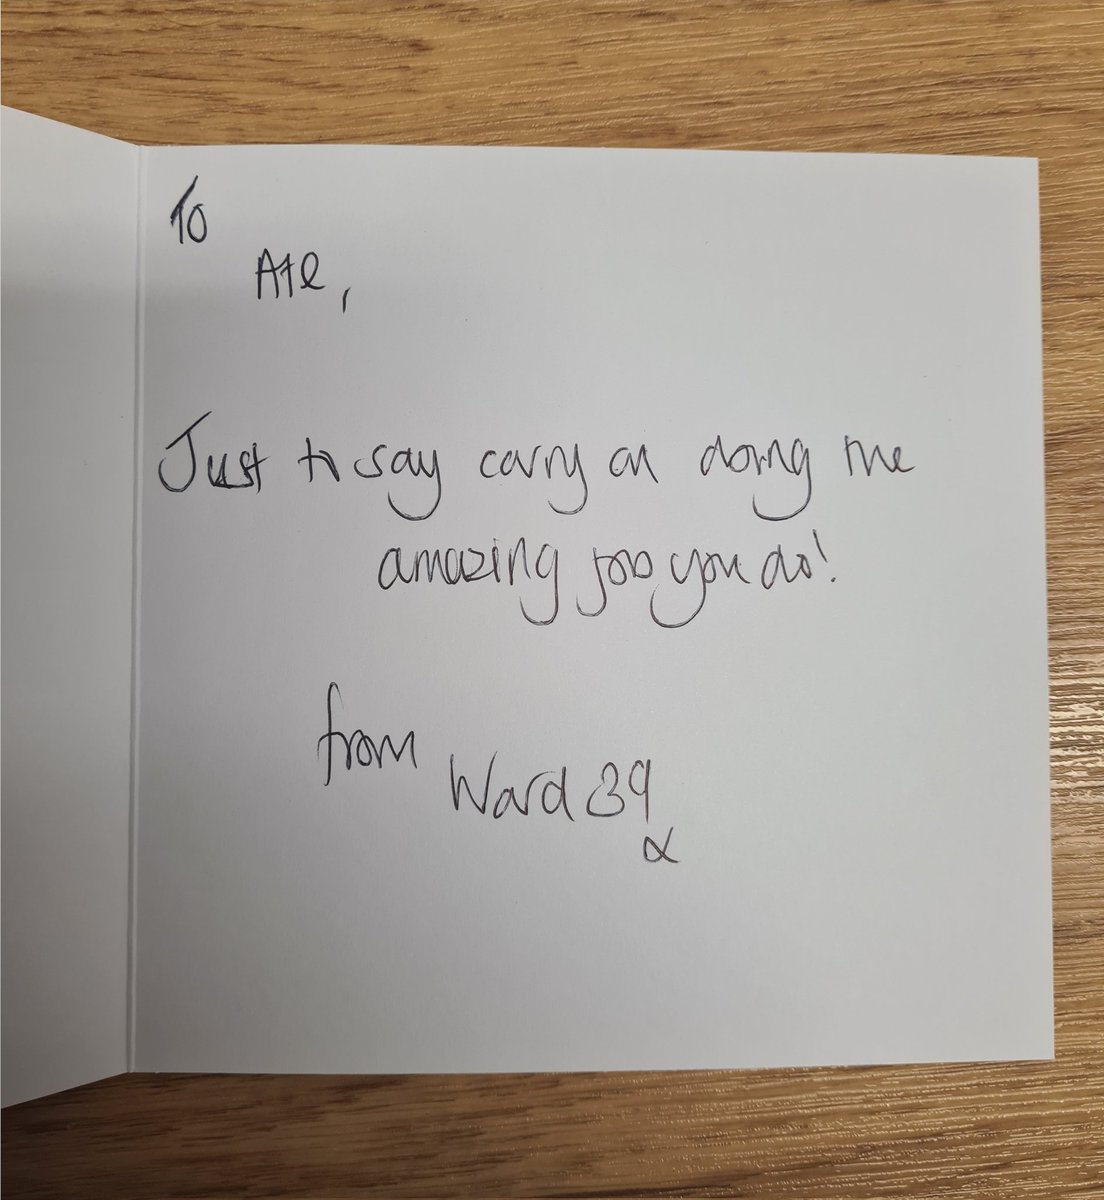 To
A+E,
Just to say carry on doing the
amazing job you do!
from
Ward 39
x